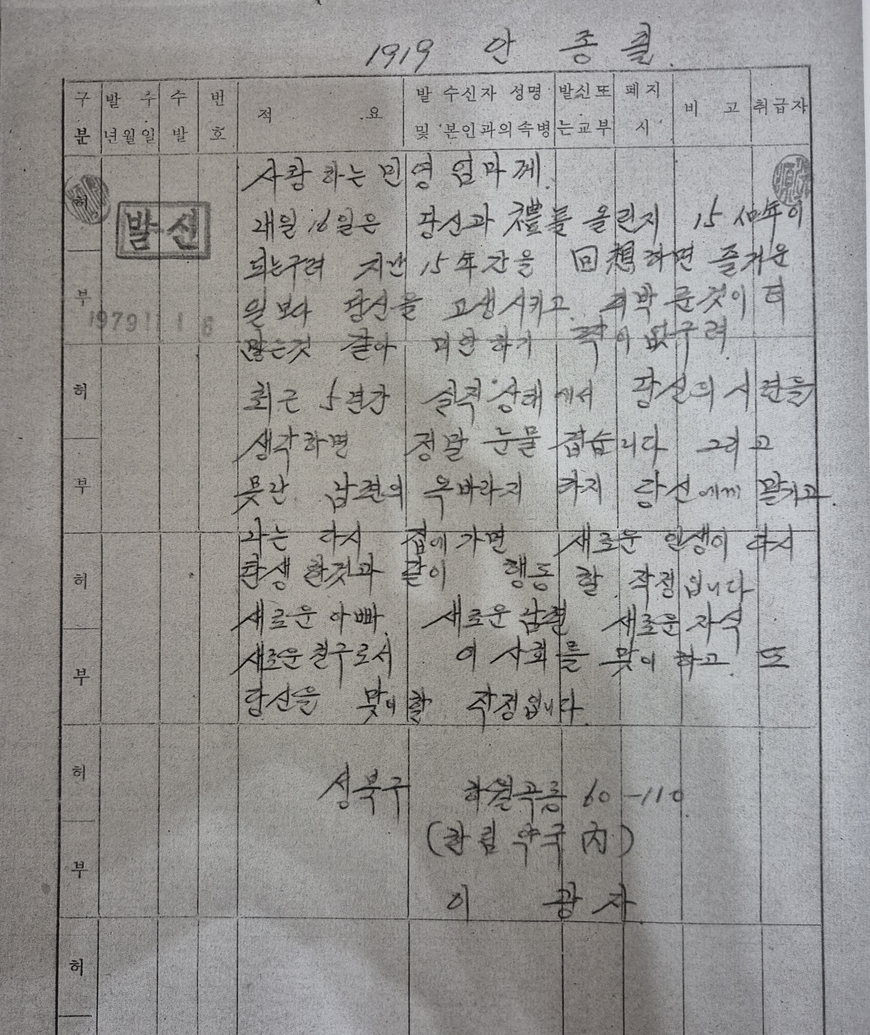 1919 안 종 쿨
구 발 수 수 번 적 요 발 수신자 성명 발신또 폐지 비 고 취급자
분 년월일 발 호 및 본인과의속병 는교부 시
사랑하는 민영 엄마께.
발신
1979 11 1 6
허
부
허
부
허
부
허
부
허
16일은 당신과 禮를 올린지 15 年이
되는구려 지난 15年간을 回想하면 즐거운
일보다 당신을 고생시키고 한것이 더
많은것 같아 미안하기 짝이 없구려
최근 5년간 실직상태에서 당신의 시련을
생각하면 정말 눈물 겹습니다 그리고
못난 남편의 옥바라지 까지 당신에게 맡기고
나는 다시 집에가면 새로운 인생이 다시
탄생 한것과 같이 행동 할 작정입니다
새로운 아빠 새로운 남편 새로운 자식
새로운 친구로서 이 사회를 맞이 하고 또
당신을 맞이할 작정입니다.
성북구 하월곡동 60-110
(한림약국內)
이 광자